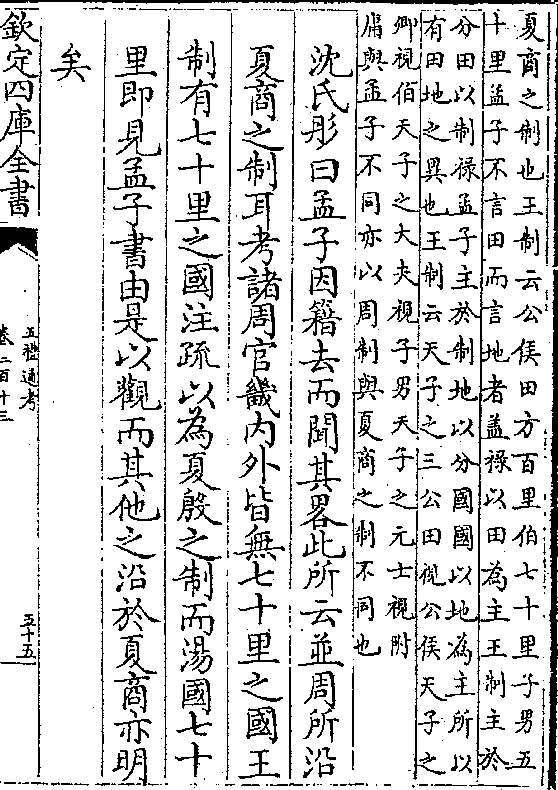 夏商之制也王制云公侯田方百里伯七十里子男五
十里孟子不言田而言地者葢禄以田為主王制主於
分田以制禄孟子主於制地以分國國以地為主所以
有田地之異也王制云天子之三公田視公侯天子之
卿視伯天子之大夫視子男天子之元士視附
庸與孟子不同亦以周制與夏商之制不同也
沈氏彤曰孟子因籍去而聞其畧此所云並周所沿
夏商之制耳考諸周官畿内外皆無七十里之國王
制有七十里之國注疏以為夏殷之制而湯國七十
里即見孟子書由是以觀而其他之沿於夏商亦明
矣
欽定四庫全書
五禮通考
卷二百十三
五十五